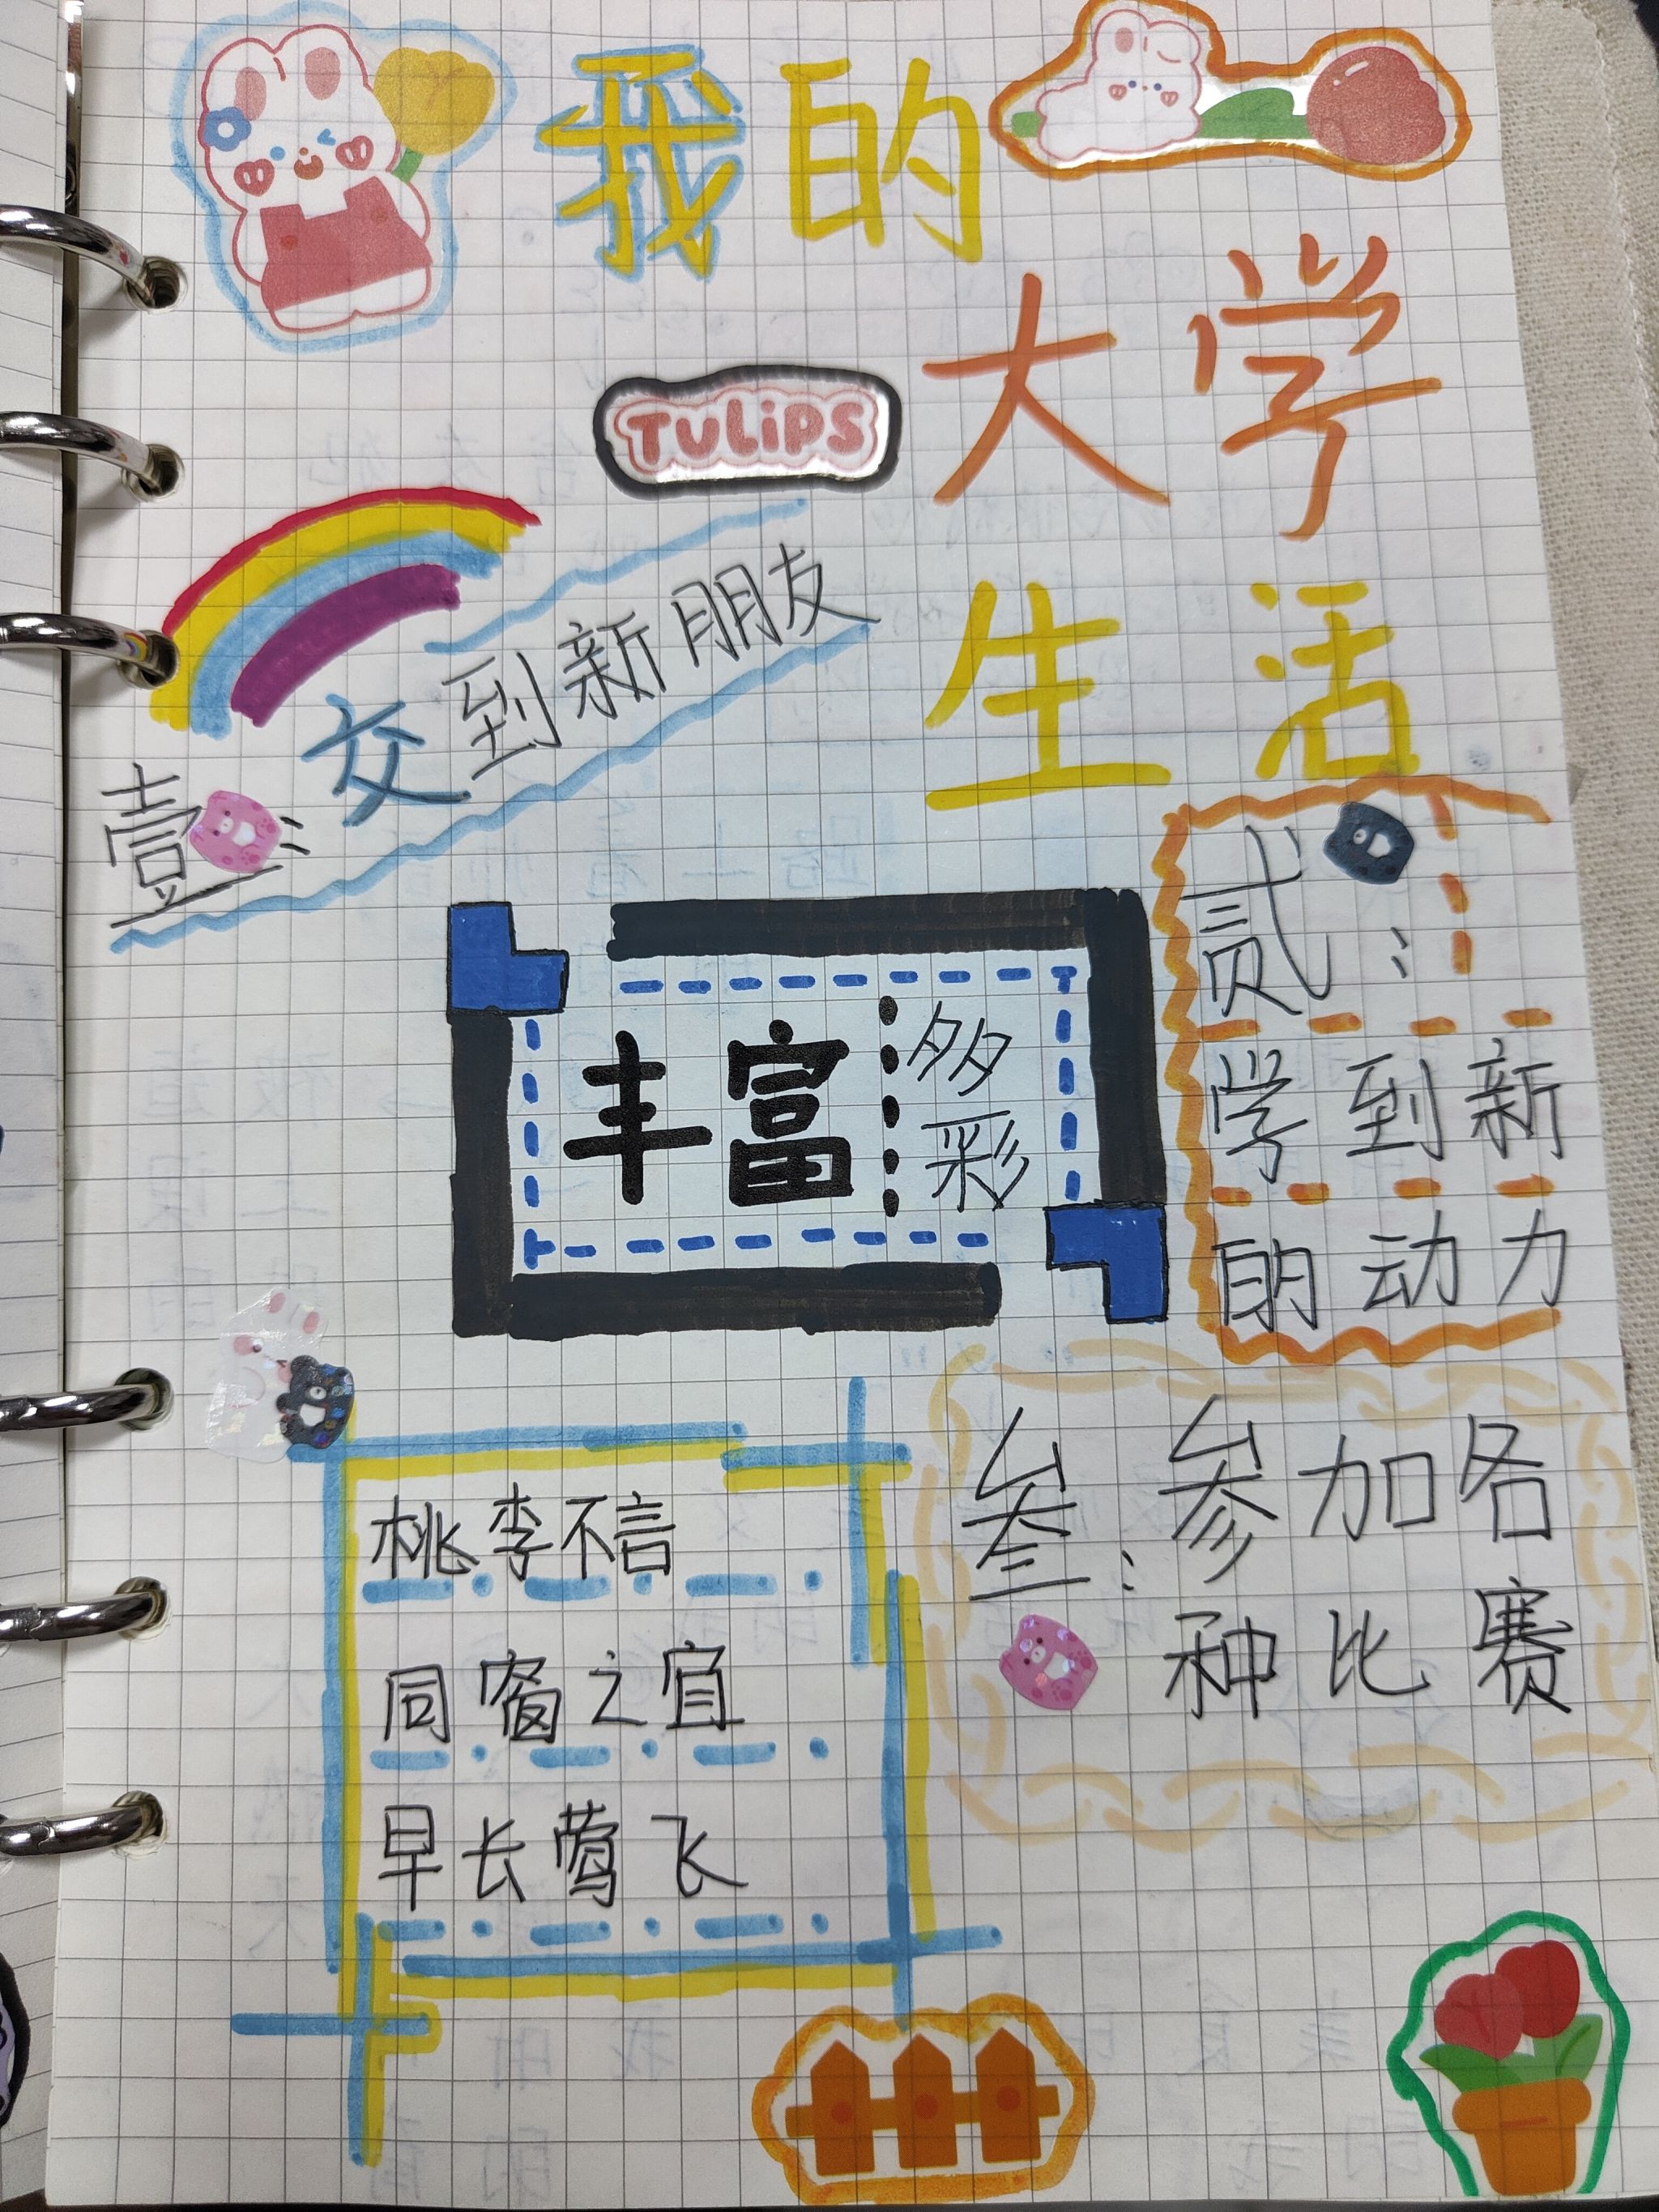 我的
大学
生活
TULiPS
壹：交到新朋友
贰：
学到新
的动力
丰富
多
彩
叁：参加各
种比赛
桃李不言
同窗之宜
早长莺飞